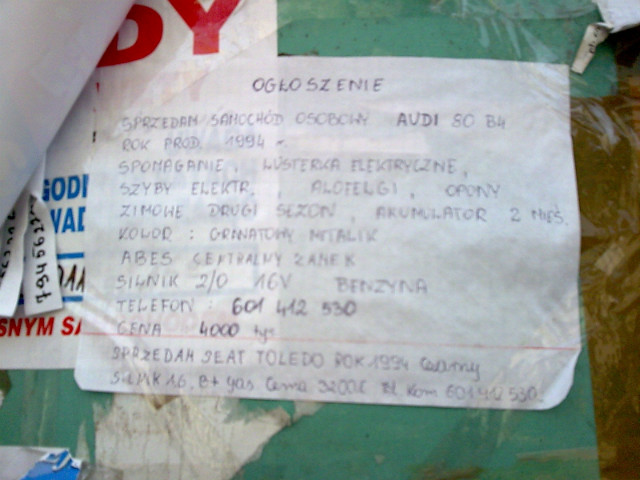 DY
OGŁOSZENIE
SPRZEDAM SAMOCHÓD OSOBOWY AUDI 80 B4
ROK PROD. 1994 r.
SPOMAGANIE, LUSTERKA ELEKTRYCZNE,
SZYBY ELEKTR., ALOFELGI, OPONY
ZIMOWE DRUGI SEZON, AKUMULATOR 2 MIEŚ.
KOLOR : GRANATOWY MITALIK
ABES CENTRALNY ZAMEK
SILNIK 2/0 16V BENZYNA
TELEFON : 601 412 530
CENA 4000 tyś
SPRZEDAM SEAT TOLEDO ROK 1994 czarny
1.6, B+gas Cena 3200 Tel. Kom 601 412 530
GODI
WAD
SNYM SA